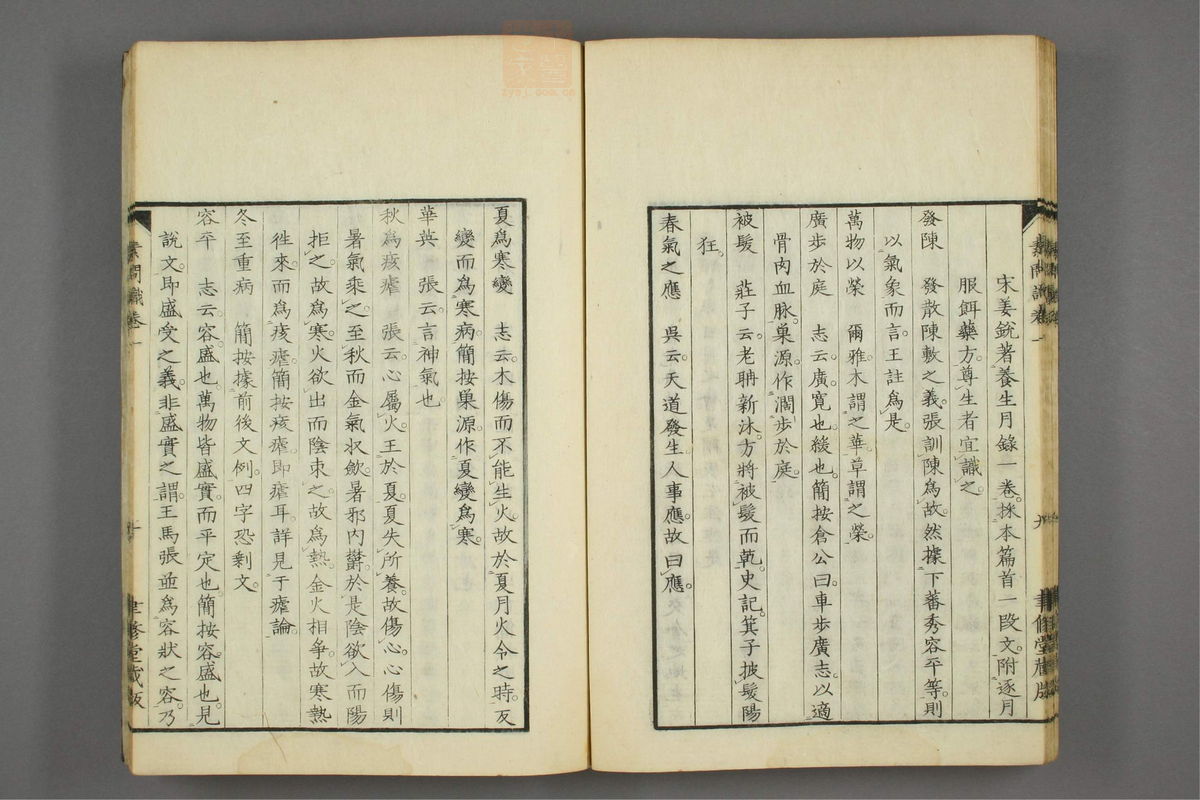 宋姜銳著養生月錄一卷。採本篇首一段文。附逐月
服餌藥方。尊生者宜識之
發陳 發散陳敷之義。張訓陳爲故。然據下蕃秀容平等。則
以氣象而言。王註爲是。
萬物以榮 爾雅。木謂之華。草謂之榮。
廣步於庭 志云。廣寬也。緩也。簡按倉公曰。車步廣志。以適
骨肉血脉。巢源作濶步於庭。
被髮 莊子云。老聃新沐。方將被髮而乾。史記。箕子披髮陽
狂。
春氣之應 吳云。天道發生。人事應。故曰應
素問識卷一
九
聿修堂藏版
夏爲寒變 志云。木傷而不能生火。故於夏月火令之時。反
變而爲寒病。簡按巢源。作夏變爲寒。
華英 張云。言神氣也
秋爲痎瘧 張云。心屬火。王於夏。夏失所養。故傷心。心傷則
暑氣乘之。至秋而金氣收斂。暑邪內欝。於是陰欲入而陽
拒之。故爲寒。火欲出而陰束之。故爲熱。金火相爭。故寒熱
徃來。而爲痎瘧。簡按痎瘧。即瘧耳。詳見于瘧論。
冬至重病 簡按據前後文例。四字恐剩文。
容平 志云。容盛也。萬物皆盛實。而平定也。簡按容盛也。見
說文。即盛受之義。非盛實之謂。王馬張並爲容狀之容。乃
素問識卷一
十
聿修堂藏版